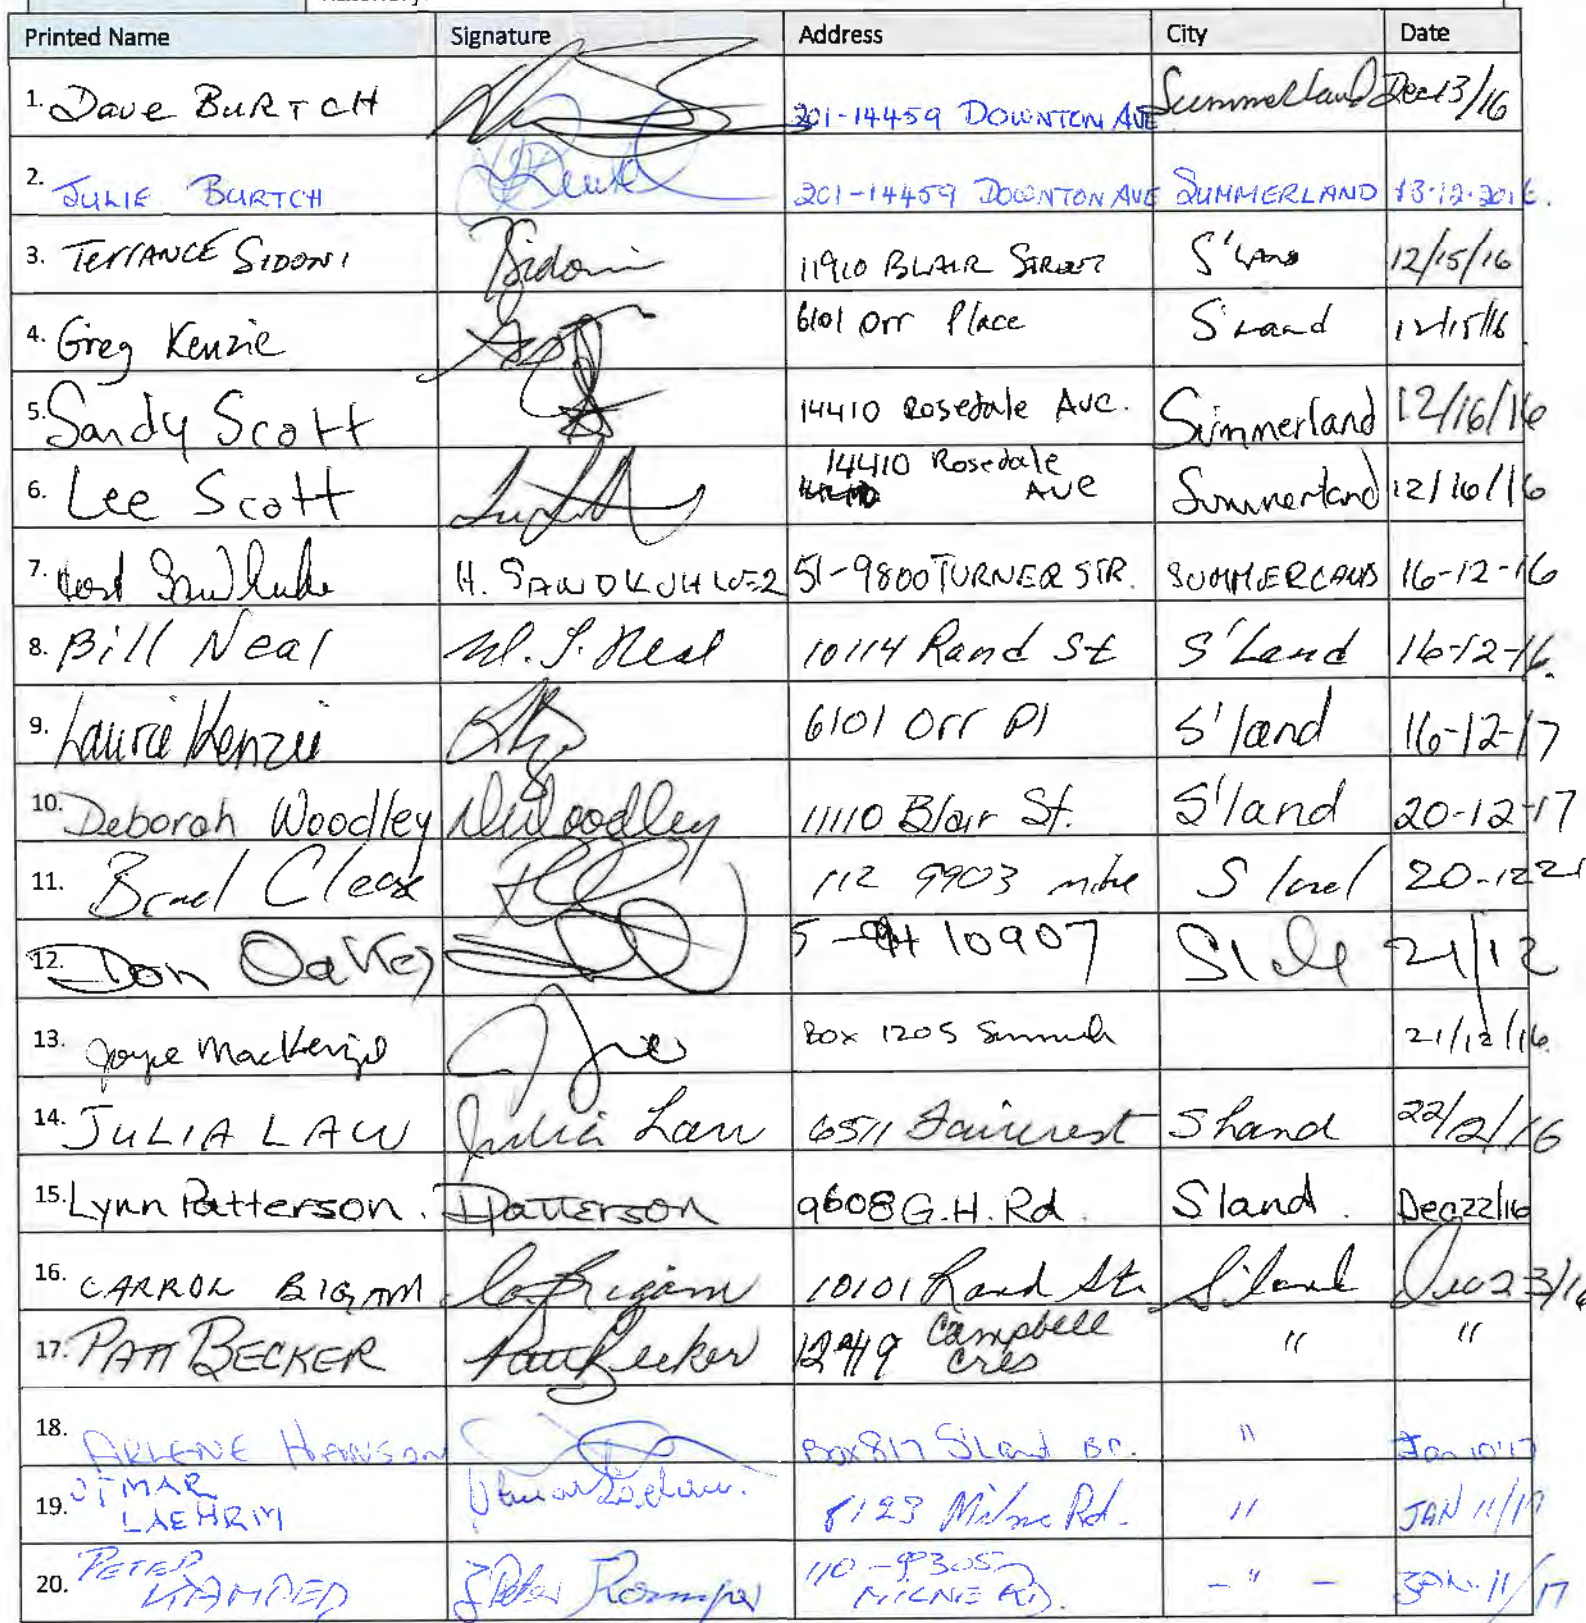 Printed Name Signature Address City Date
1. Dave BURTCH 201-14459 DOWNTON AVE Summerland Dec 13/16
2. JULIE BURTCH 201-14459 DOWNTON AVE SUMMERLAND 13-12-2016.
3. TERRANCE SIDONI Sidoni 11910 BLAIR STREET S'LAND 12/15/16
4. Greg Kenzie 6101 Orr Place S'Land 12/15/16
5. Sandy Scott 14410 Rosedale Ave. Summerland 12/16/16
6. Lee Scott 14410 Rosedale AVE Summerland 12/16/16
7. H. 51-9800 TURNER STR. SUMMERLAND 16-12-16
8. Bill Neal W. J. Neal 10114 Rand St S'Land 16-12-16.
9. Laurie Kenzie 6101 Orr Pl S'land 16-12-17
10. Deborah Woodley DWoodley 11110 Blair St. S'land 20-12-17
11. Brad 112 9903 S'land 20-12 21
12. Don Oakley 5- 10907 21/12
13. Joyce MacKenzie Box 1205 21/12/16
14. JULIA LAW Julia Law 6511 Faircrest S'land 22/2/16
15. Lynn Patterson. LPatterson 9608 G.H. Rd. S'land. Dec 22/16
16. CARROL BIGAM Ca. Bigam 10101 Rand St. S'land Dec 23/16
17. PATT BECKER Patt Becker Campbell Cres " "
18. ARLENE HANSON Box 817 S'Land BC. " Jan 10'17
19. OTMAR LAEHRM 8123 Milne Rd. " JAN 11/17
20. PETER Peter 110-9930 MILNE RD. - " - JAN. 11/17